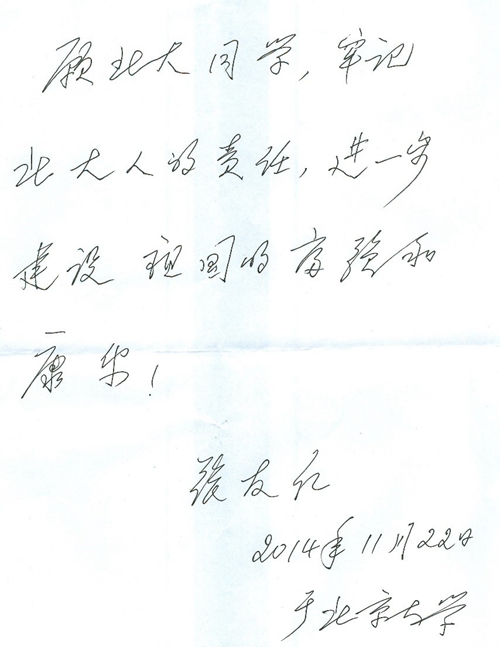 愿北大同学,牢记
北大人的责任,进一步
建设祖国的富强和
康乐!
张友仁
2014年11月22日
于北京大学